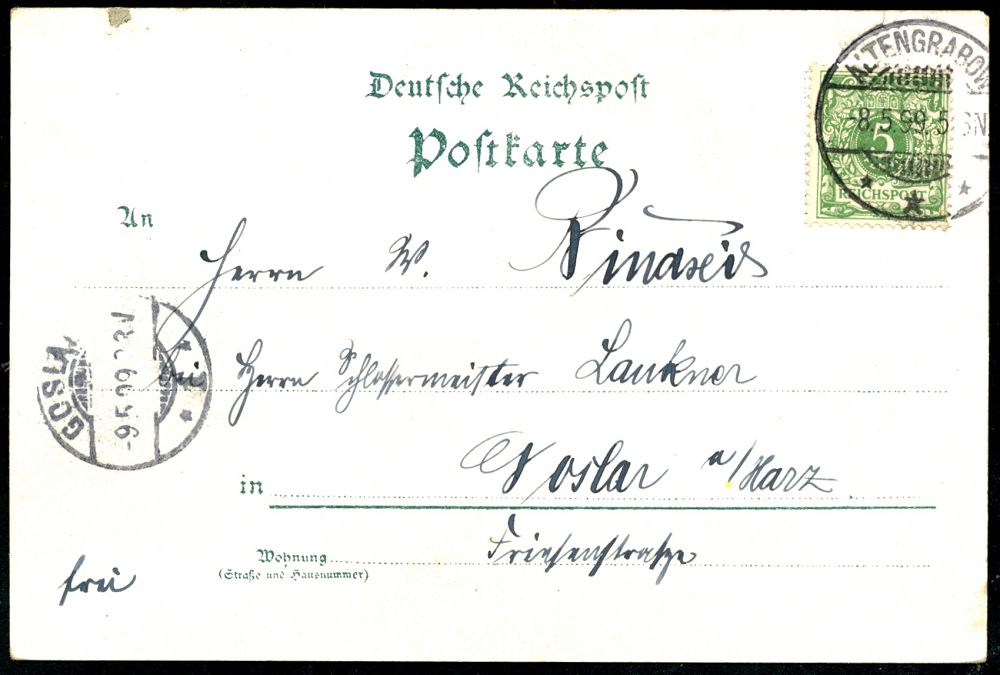 Deutsche Reichspost
Postkarte
ALTENGRABOW
-8.5.99.5
5
REICHSPOST
An
Herrn W.
bei Herrn Schlossermeister Laukner
GOSLA
-9.5.99
in Goslar a/Harz
Wohnung Friesenstraße
(Straße und Hausnummer)
frei